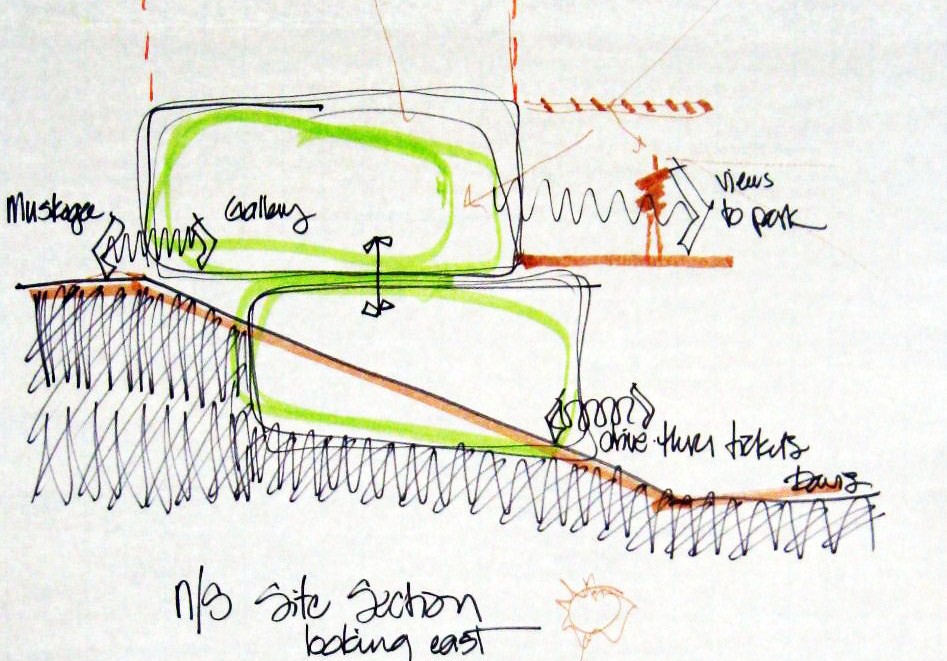 Muskogee
Gallery
views
to park
drive thru tickets
Davis
n/s Site Section
looking east